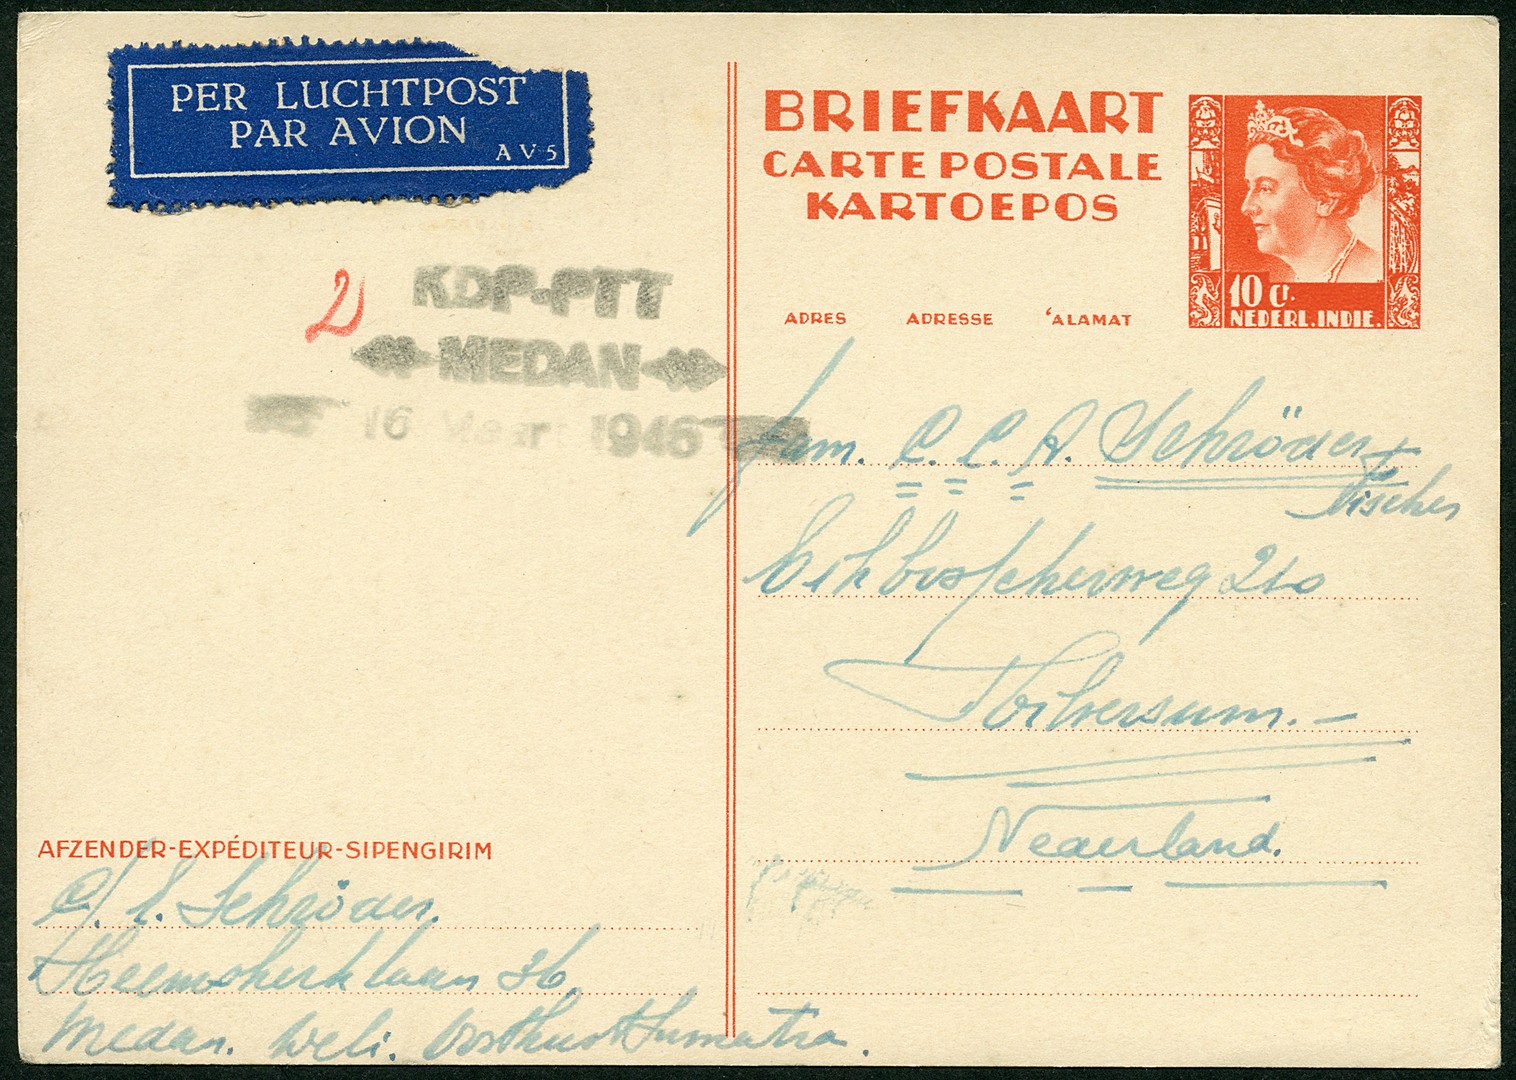 PER LUCHTPOST
PAR AVION
AV5
BRIEFKAART
CARTE POSTALE
KARTOEPOS
10 CT.
NEDERL. INDIE.
2
KDP-PTT
MEDAN
16 Maart 1946
ADRES ADRESSE 'ALAMAT
Fam. C. C. A. Schröder
Visscher
210
Hilversum.-
Nederland.
AFZENDER-EXPÉDITEUR-SIPENGIRIM
Schröder.
Heemskerklaan 36
Medan. Deli. Oostkust Sumatra.